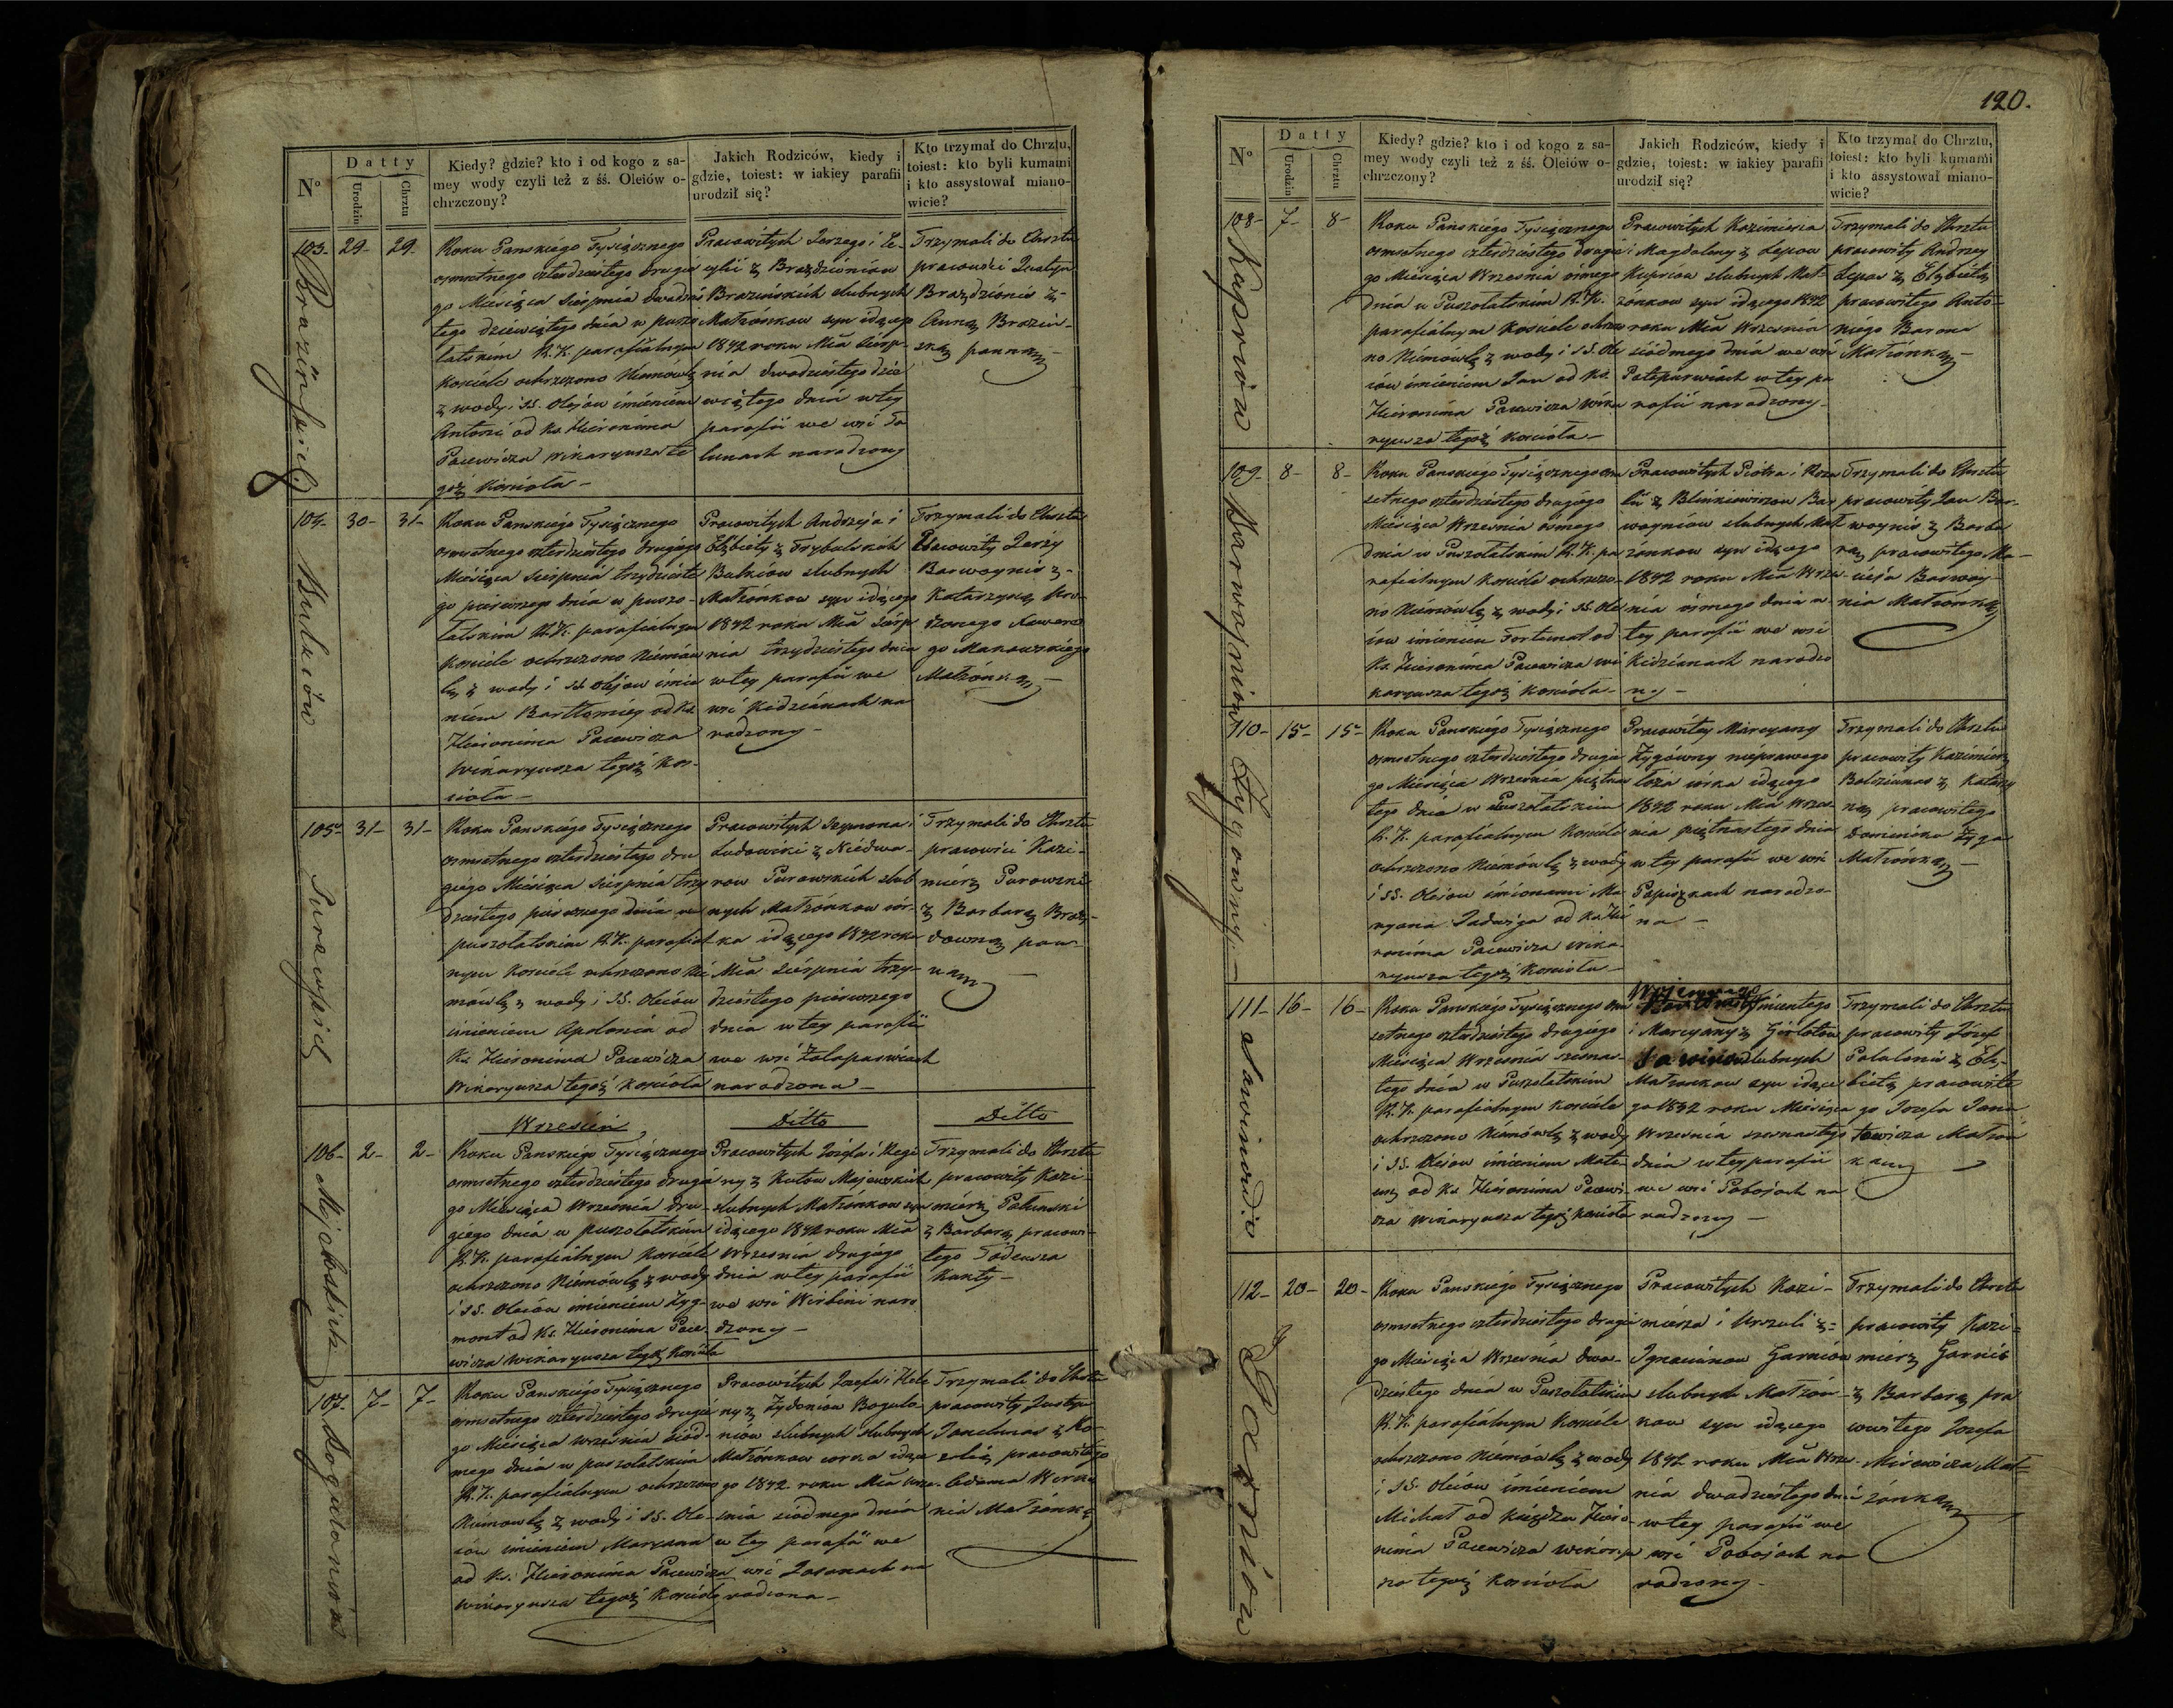 N°
Datty
Urodzin
Chrztu
Kiedy? gdzie? kto i od kogo z sa-
mey wody czyli też z śś. Oleiów o-
chrzczony?
Jakich Rodziców, kiedy i
gdzie, toiest: w iakiey parafii
urodził się?
Kto trzymał do Chrztu,
toiest: kto byli kumami
i kto assystował miano-
wicie?
103- 29- 29-
Brazińskich
Roku Panskiégo Tysiącznego
osmsetnego czterdziestego drugie
go Miesiąca Sierpnia dwadzies
tego dziewiątego dnia w puszo
łatskim R.K. parafialnym
Kościele ochrzczono Niemowlę
z wody i SS. Olejów imieniem
Antoni od Ks. Hieronima
Pacewicza Wikaryusza te
goż Kościoła-
Pracowitych Jerzego i Ce-
cylii z Brazdziuniow
Brazińskich slubnych
Małżonkow syn idącego
1842 roku Mca Sierp-
nia dwadziestego dzie
wiątego dnia w tey
parafii we wsi
narodzony
Trzymali do Chrztu
pracowici
Brazdzionis z
Anną Braziń-
ską panną-
104- 30- 31-
Butkiów
Roku Panskiégo Tysiącznego
osmsetnego czterdziestego drugiego
Miesiąca Sierpnia trzydzieste
go pierwszego dnia w puszo-
łatskim R.K. parafialnym
Kościele ochrzczono Niemow
lę z wody i SS olejow imie
niem Bartłomiey od Ks.
Hieronima Pacewicza
Wikaryusza tegoż Koś-
cioła-
Pracowitych Andrzeja i
Elżbiety z Trybulskich
Butkiów slubnych
Małżonkow syn idącego
1842 roku Mca Sierp
nia trzydziestego dnia
w tey parafii we
wsi Kidzianach na
rodzony-
Trzymali do Chrztu
Pracowity Jerzy
Barwoynis z
Katarzyną Uro-
dzonego Xawere
go Makowskiego
Małżonką-
105- 31- 31-
Purawskich
Roku Panskiégo Tysiącznego
osmsetnego czterdziestego dru
giego Miesiąca Sierpnia trzy
dziestego pierwszego dnia w
puszołatskim R.K. parafial
nym Kościele ochrzczono Nie
mówlę z wody i SS. Oleiów
imieniem Apolonia od
Ks. Hieronima Pacewicza
Wikaryusza tegoż Kościoła
Pracowitych Szymona i
Ludowiki z Niedwa-
row Purawskich slub
nych Małżonkow cór-
ka idącego 1842 roku
Mca Sierpnia trzy-
dziestego pierwszego
dnia w tey parafii
we wsi
narodzona-
Trzymali do Chrztu
pracowici Kazi-
mierz Purowski
z Barbarą
pan-
ną
Wrzesień Ditto Ditto
106- 2- 2-
Majewskich
Roku Panskiego Tysiącznego
osmsetnego czterdziestego drugie
go Miesiąca Września dru-
giego dnia w puszołatskim
R.K. parafialnym Kościele
ochrzczono Niemówlę z wody
i SS. Oleiów imieniem Zyg-
mont od Ks. Hieronima Pace-
wicza Wikaryusza tegoż Kościoła
Pracowitych Józefa i Regi
ny z Kutow Majewskich
slubnych Małżonkow syn
idącego 1842 roku Mca
Września drugiego
dnia w tey parafii
we wsi Wirbini naro
dzony-
Trzymali do Chrztu
pracowity Kazi-
mierz Palunski
z Barbarą pracowi-
tego Tadeusza
Kunty-
107- 7- 7-
Bogulaniów
Roku Panskiégo Tysiącznego
osmsetnego czterdziestego drugie
go Miesiąca września siód-
mego dnia w puszołatskim
R.K. parafialnym ochrzczono
Niemowlę z wody i SS. Ole-
iow imieniem Maryanna
od Ks. Hieronima Pacewicza
wikaryusza tegoż Kościoła
Pracowitych Jozefa i Hele
ny z Żydoniow Bogula-
niow slubnych slubnych
Małżonkow corka idące
go 1842 roku Mca Wrze-
śnia siodmego dnia
w tey parafii we
wsi na
rodzona-
Trzymali do Chrztu
pracowity Justyn
Janelunas z
pracowitego
Adama
nia Małżonką
120.
N°
Datty
Urodzin
Chrztu
Kiedy? gdzie? kto i od kogo z sa-
mey wody czyli też z śś. Oleiów o-
chrzczony?
Jakich Rodziców, kiedy i
gdzie, toiest: w iakiey parafii
urodził się?
Kto trzymał do Chrztu,
toiest: kto byli kumami
i kto assystował miano-
wicie?
108- 7- 8-
Kupriów
Roku Pańskiégo Tysiącznego
osmsetnego czterdziestego drugie
go Miesiąca Września osmego
dnia w Puszołatskim R.K.
parafialnym Kościele ochrzczo
no Niemówlę z wody i SS. Ole
iów imieniem Jan od Ks.
Hieronima Pacewicza Wika
ryusza tegoż Kościoła-
Pracowitych Kazimierza
i Magdaleny z Lepow
Kupriow slubnych Mał-
żonkow syn idącego 1842
roku Mca Września
siódmego dnia we wsi
w tey pa
rafii narodzony-
Trzymali do Chrztu
pracowity Andrzey
Lepas z Elżbietą
pracowitego Anto-
niego Barona
Małżonką-
109- 8- 8-
Barwojniów
Roku Panskiego Tysiącznego osm
setnego czterdziestego drugiego
Miesiąca Września ósmego
dnia w Puszołatskim R.K. pa
rafialnym Kościele ochrzczo-
no Niemówlę z wody i SS. Ole
iów imieniem Fortunat od
Ks. Hieronima Pacewicza wi
karyusza tegoż Kościoła-
Pracowitych Piotra i Roza
lii z Blinkiewiczow Bar
woyniów slubnych Mał
żonkow syn idącego
1842 roku Mca Wrze-
nia ósmego dnia w
tey parafii we wsi
Kidzianach narodzo
ny-
Trzymali do Chrztu
pracowity Jan Bar-
woynis z Barba
rą pracowitego Ma-
cieja Barwoy-
nia Małżonką
110- 15- 15-
Żygówny-
Roku Pańskiégo Tysiącznego
osmsetnego czterdziestego drugie
go Miesiąca Września piętnas
tego dnia w Puszołatskim
R.K. parafialnym Kościele
ochrzczono Niemówlę z wody
i SS. Oleiow imionami Ma-
ryana Jadwiga od Ks. Hie
ronima Pacewicza Wika
ryusza tegoż Kościoła-
Pracowitey Maryany
Żygówny nieprawego
łoża córka idącego
1842 roku Mca Wrześ
nia piętnastego dnia
w tey parafii we wsi
Papiszkach narodzo-
na-
Trzymali do Chrztu
pracowity Kazimierz
Balziunas z Katarzy
ną pracowitego
Dominika Żyga
Małżonką-
111- 16- 16-
Sawinow
Roku Panskiego Tysiącznego osm
setnego czterdziestego drugiego
Miesiąca Września szesnas-
tego dnia w Puszołatskim
R.K. parafialnym Kościele
ochrzczono Niemówlę z wody
i SS. Oleiow imieniem Mate-
usz od Ks. Hieronima Pacewi-
cza Wikaryusza tegoż Kościoła
i Maryany z Girlotow
slubnych
Małżonkow syn idące
go 1842 roku Miesiąca
Września szesnastego
dnia w tey parafii
we wsi Pobojach na
rodzony-
Trzymali do Chrztu
pracowity Józef
Palulonis z Elż-
bietą pracowite
go Jozefa Jana
towicza Małżon
ką
112- 20- 20-
Garniów
Roku Panskiego Tysiącznego
osmsetnego czterdziestego drugie
go Miesiąca Września dwa-
dziestego dnia w Puszołatskim
R.K. parafialnym Kościele
ochrzczono Niemówlę z wody
i SS. Oleiów imieniem
Michał od Księdza Hiero-
nima Pacewicza
tegoż Kościoła
Pracowitych Kazi-
mierza i Urszuli z
Ignaciunow Garniow
slubnych Małżon-
kow syn idącego
1842 roku Mca Wrze-
nia dwadziestego dnia
w tey parafii we
wsi Pobojach na
rodzony-
Trzymali do Chrztu
pracowity Kazi-
mierz Garnis
z Barbarą pra
cowitego Jozefa
Misewicza Mał-
żonką